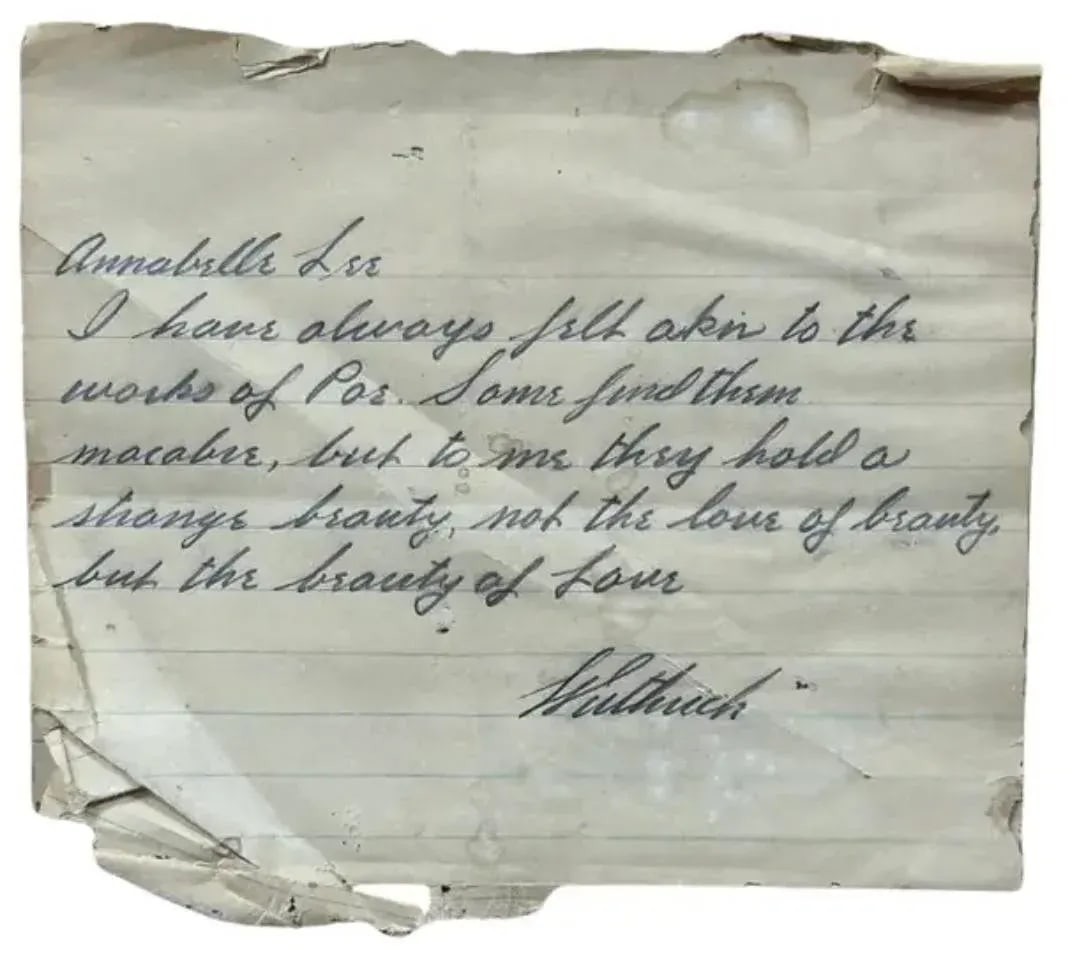 Annabelle Lee
I have always felt akin to the
works of Poe. Some find them
macabre, but to me they hold a
strange beauty, not the love of beauty,
but the beauty of Love